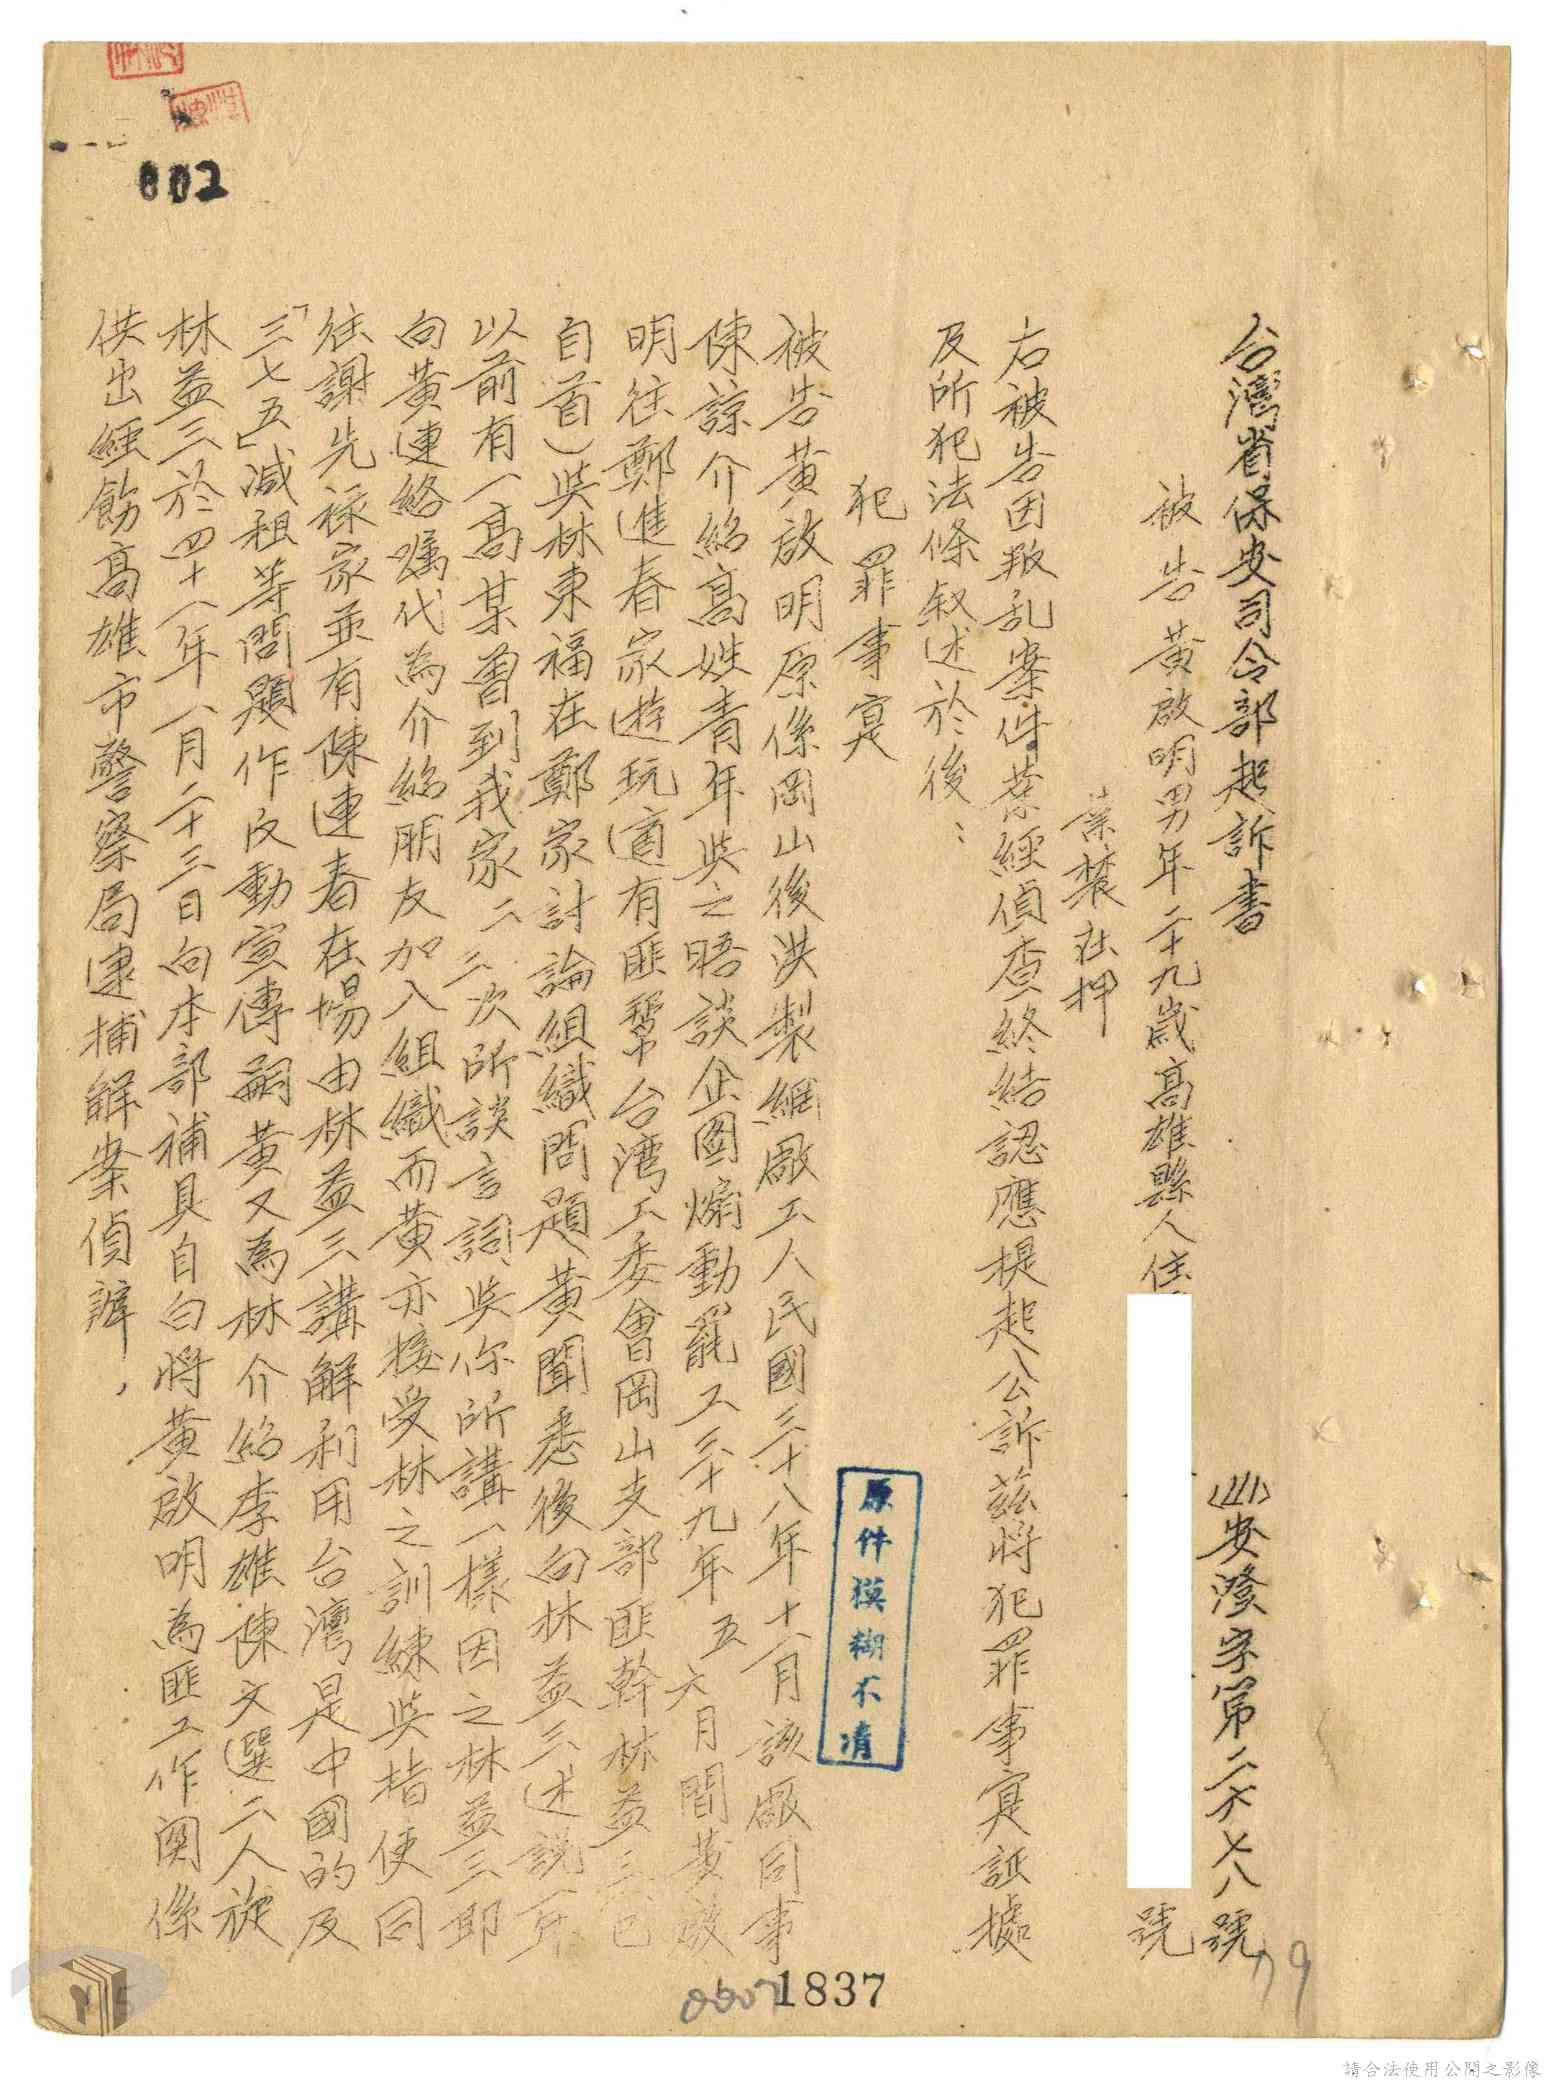 台灣省保安司令部起訴書
安潦字第二六七八號
被告 黃啟明 男 年二十九歲 高雄縣人 住
號
業 在押
右被告因叛乱案件業經偵查終結認應提起公訴茲將犯罪事寔証據
及所犯法條叙述於後：
犯罪事寔
被告黃啟明原係岡山後洪製網廠工人民國三十八年十一月該廠同事
陳諒介紹高姓青年與之晤談企圖煽動罷工三十九年五六月間黃啟
明往鄭進春家遊玩適有匪幫台灣工委會岡山支部匪幹林益三（已
自首）與林東福在鄭家討論組織問題黃聞悉後向林益三述說一年
以前有一高某曾到我家二三次所談言詞與你所講一樣因之林益三即
向黃連絡囑代為介紹朋友加入組織而黃亦接受林之訓練與指使同
往謝先祿家並有陳連春在場由林益三講解利用台灣是中國的及
「三七五」減租等問題作反動宣傳嗣黃又為林介紹李雄陳文選二人旋
林益三於四十一年一月二十三日向本部補具自白將黃啟明為匪工作關係
供出經飭高雄市警察局逮捕解案偵辦，
原件模糊不清
002
1837
79
請合法使用公開之影像